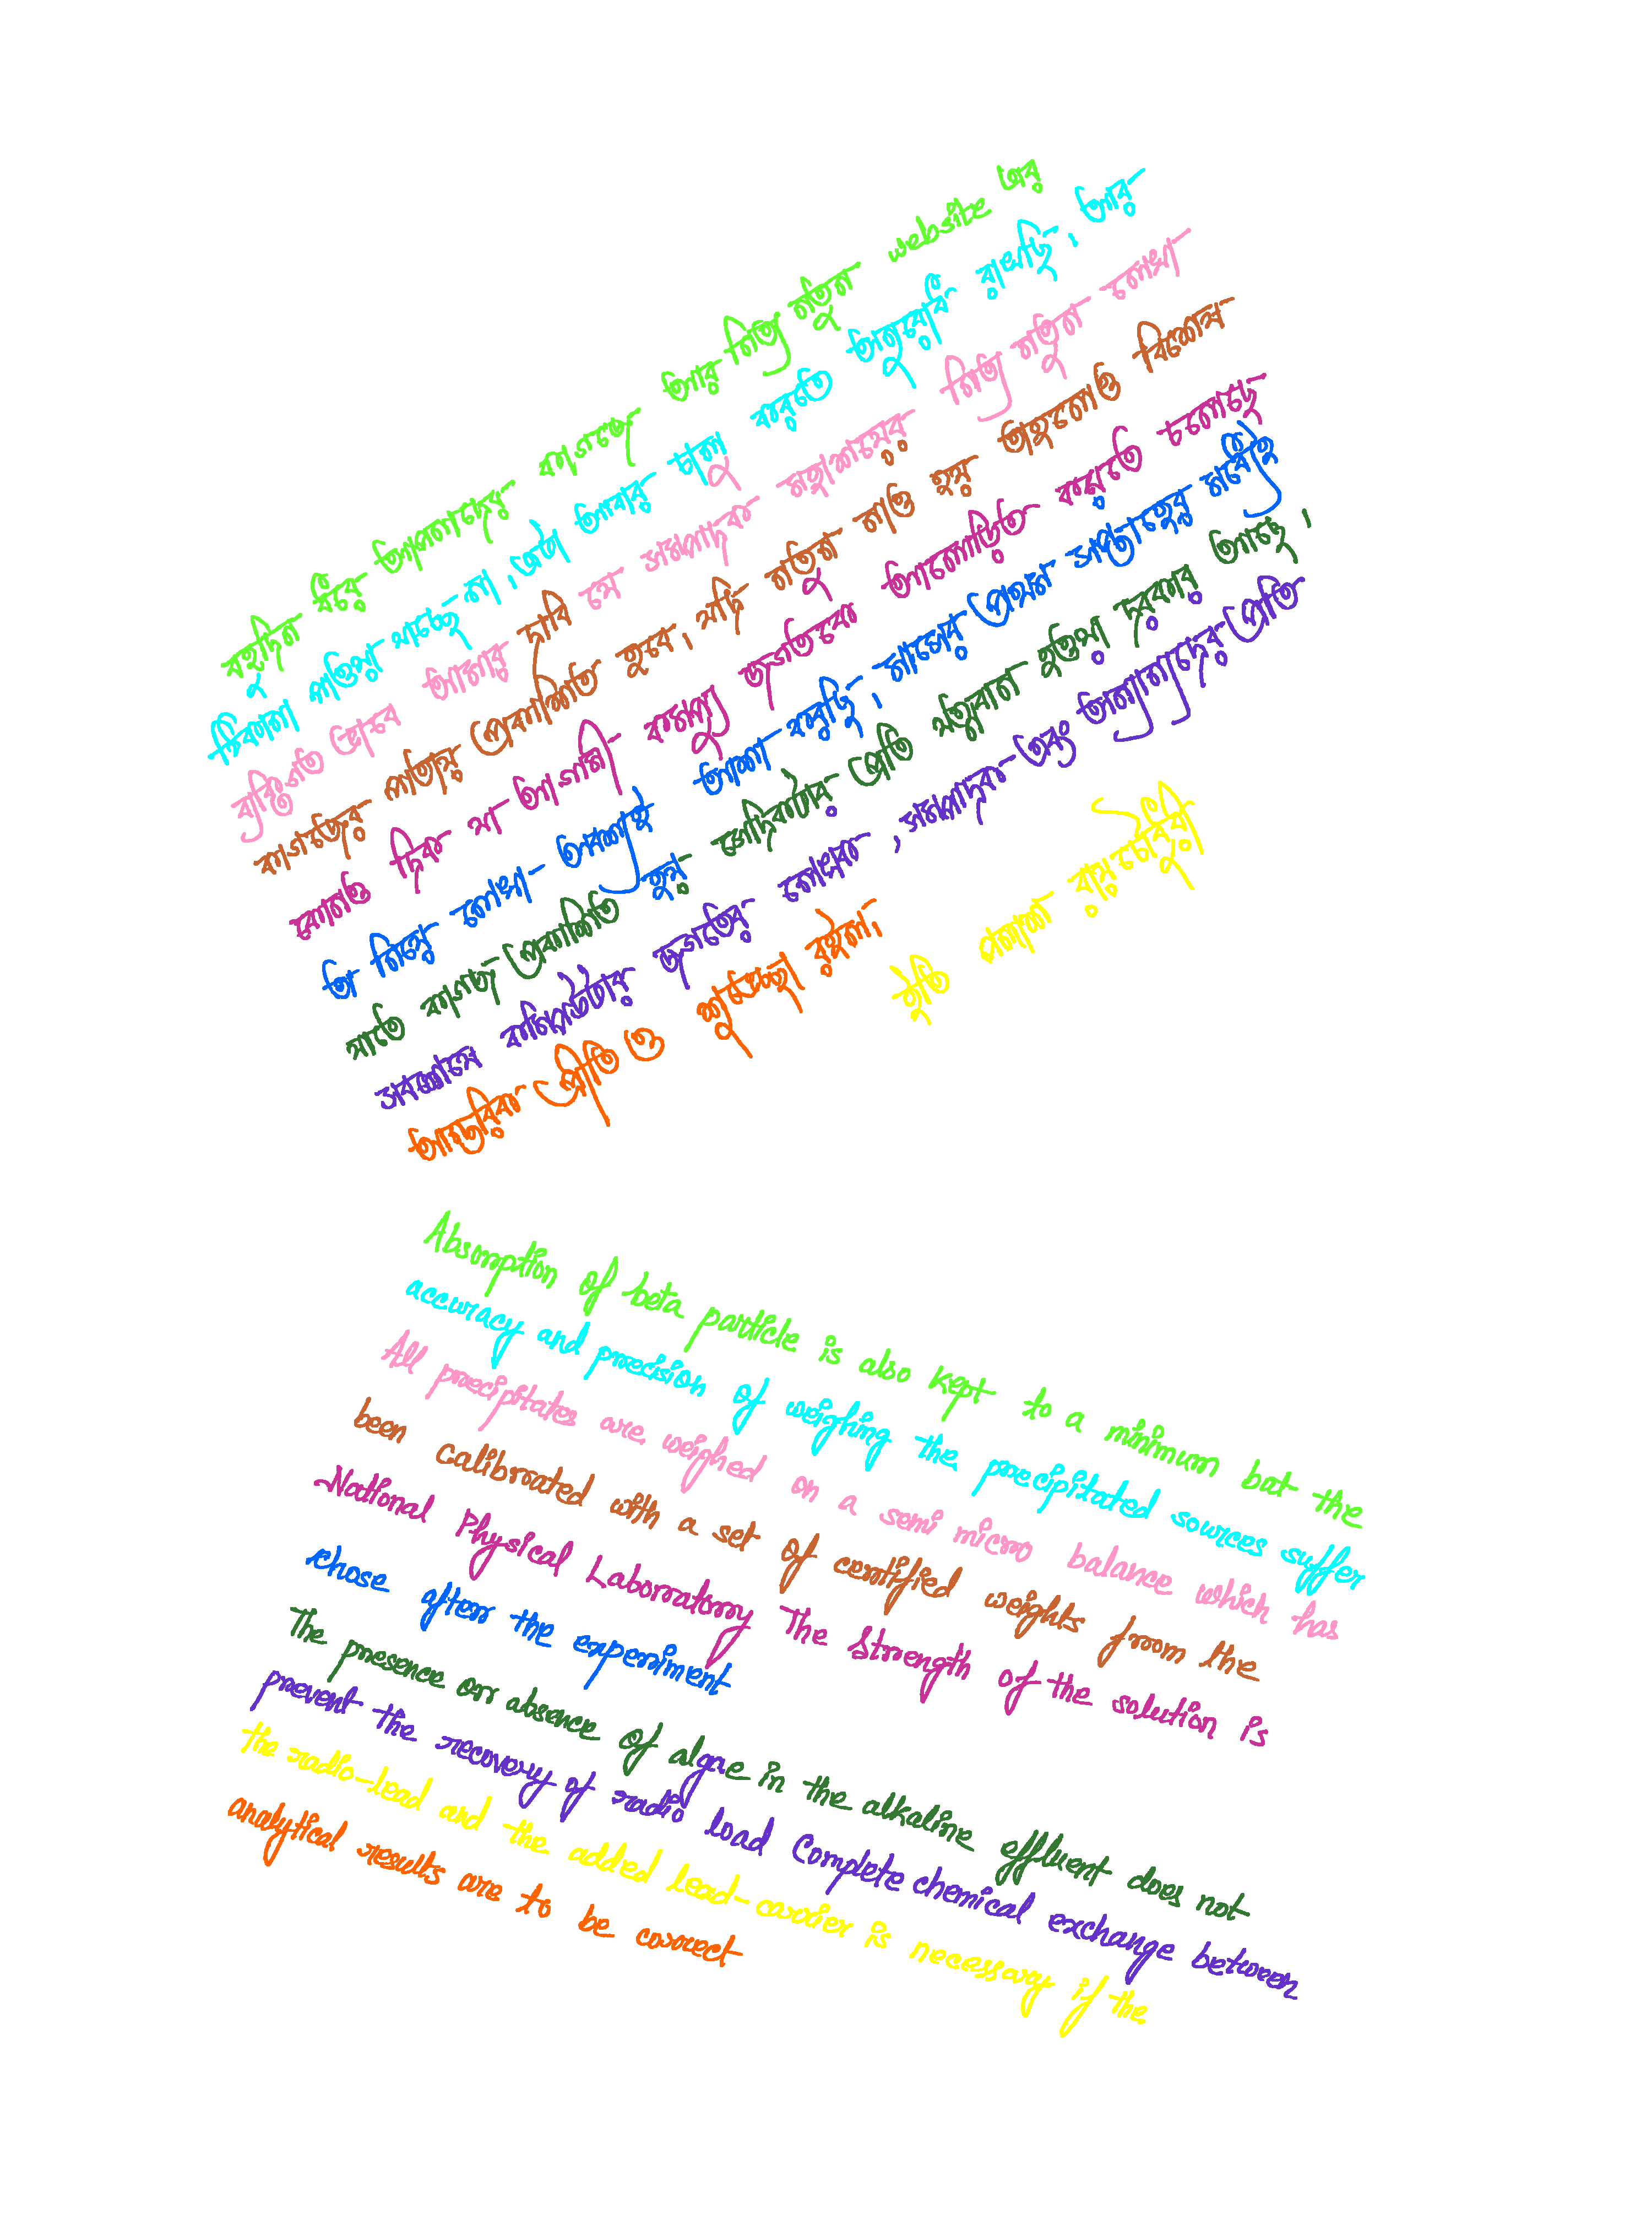 বহুদিন ধরে আপনাদের কাগজে আর নিত্য নতুন website এর
ঠিকানা পাওয়া যাচ্ছে না, এটা আবার চালু করতে অনুরোধ রাখছি, আর
ব্যক্তিগত ভাবে আমার দাবি যে সম্পাদক মহাশয়ের নিত্য নতুন লেখা
কাগজের পাতায় প্রকাশিত হবে, যদি নতুন নাও হয় তাহলেও বিশেষ
কোনও দিক যা আগামী কাম্পু জগতকে আলোড়িত করতে চলেছে
তা নিয়ে লেখা অবশ্যই আশা করছি, মাসের প্রথম সপ্তাহের মধ্যেই
যাতে কাগজ প্রকাশিত হয় সেদিকটার প্রতি যত্নবান হওয়া দরকার আছে,
সবশেষে কম্পিউটার জগতের লেখক, সম্পাদক এবং অন্যান্যদের প্রতি
আন্তরিক প্রীতি ও শুভেচ্ছা রইল,
ইতি পলাশ রায়চৌধুরী
Absorption of beta particle is also kept to a minimum bat the
accuracy and precision of weighing the precipitated sources suffer
All precipitates are weighed on a semi micro balance which has
been calibrated with a set of certified weights from the
National Physical Laboratory The strength of the solution is
chose after the experiment
The presence or absence of algae in the alkaline effluent does not
prevent the recovery of radio load Complete chemical exchange between
the radio-lead and the added lead-carrier is necessary if the
analytical results are to be correct